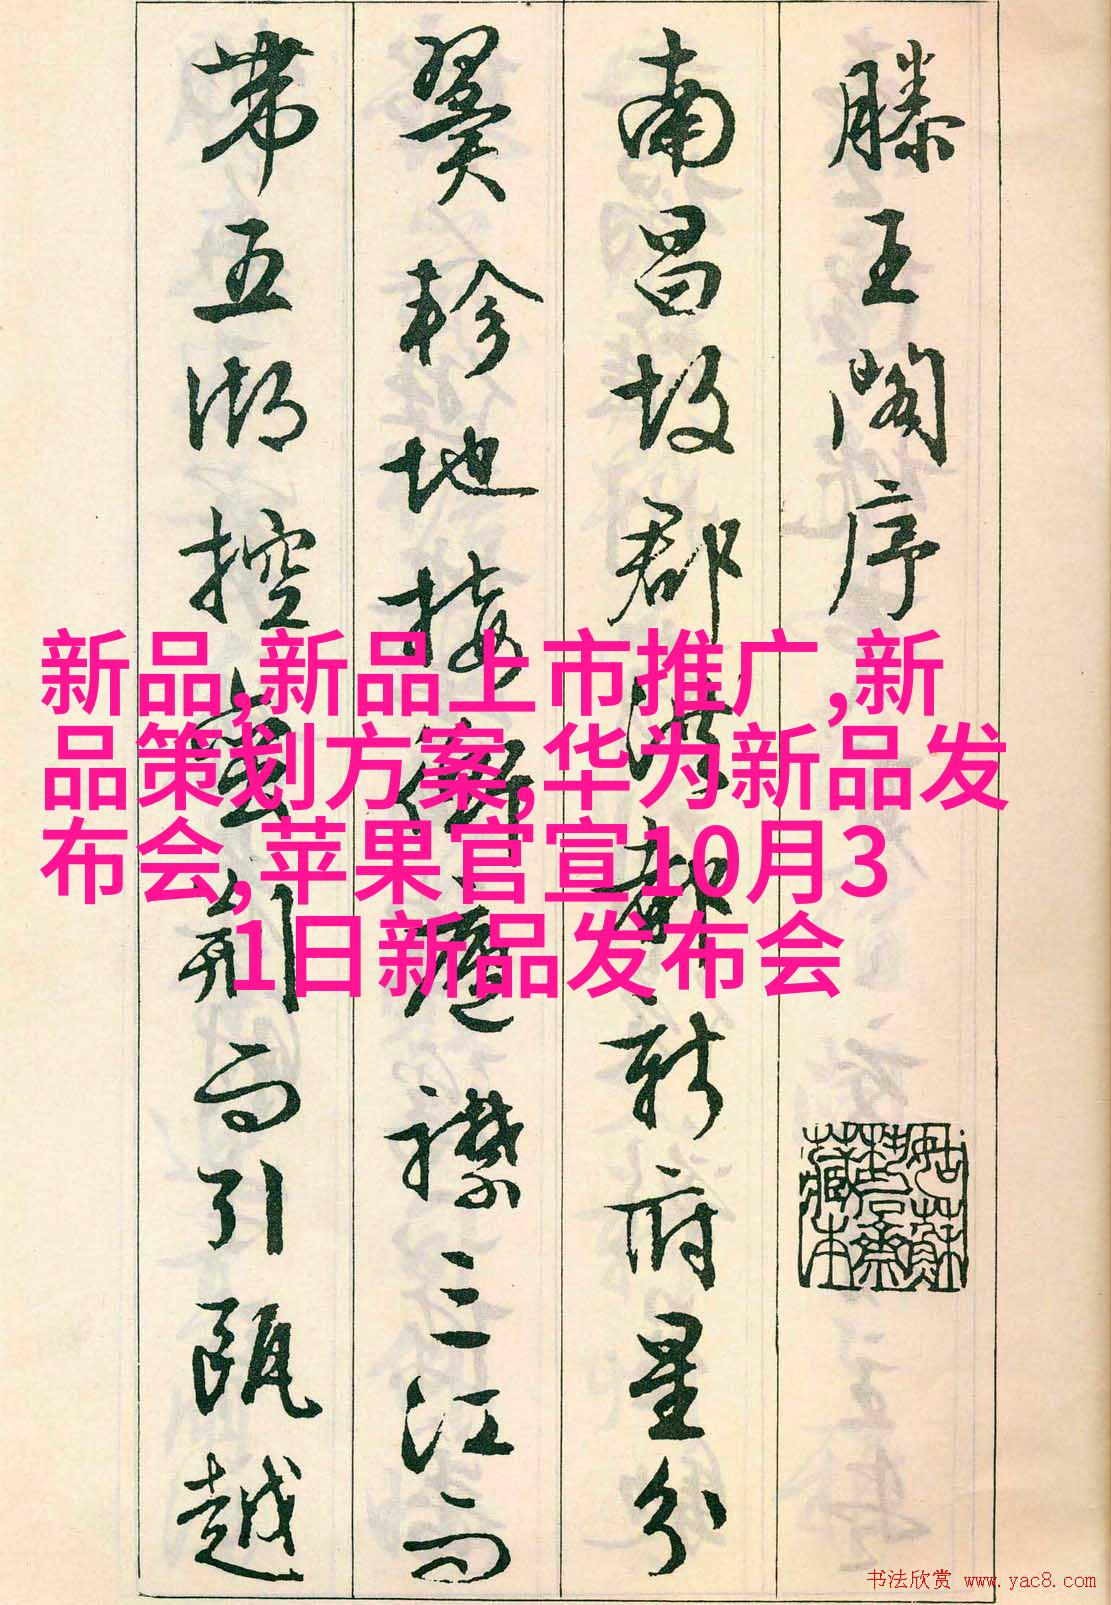 滕王閣序
南昌故郡洪都新府星分
翼軫地接衡廬襟三江而
帶五湖控蠻荆而引甌越
新品,新品上市推广,新
品策划方案,华为新品发
布会,苹果官宣10月3
1日新品发布会
姑蘇
藏本
书法欣赏 www.yac8.com